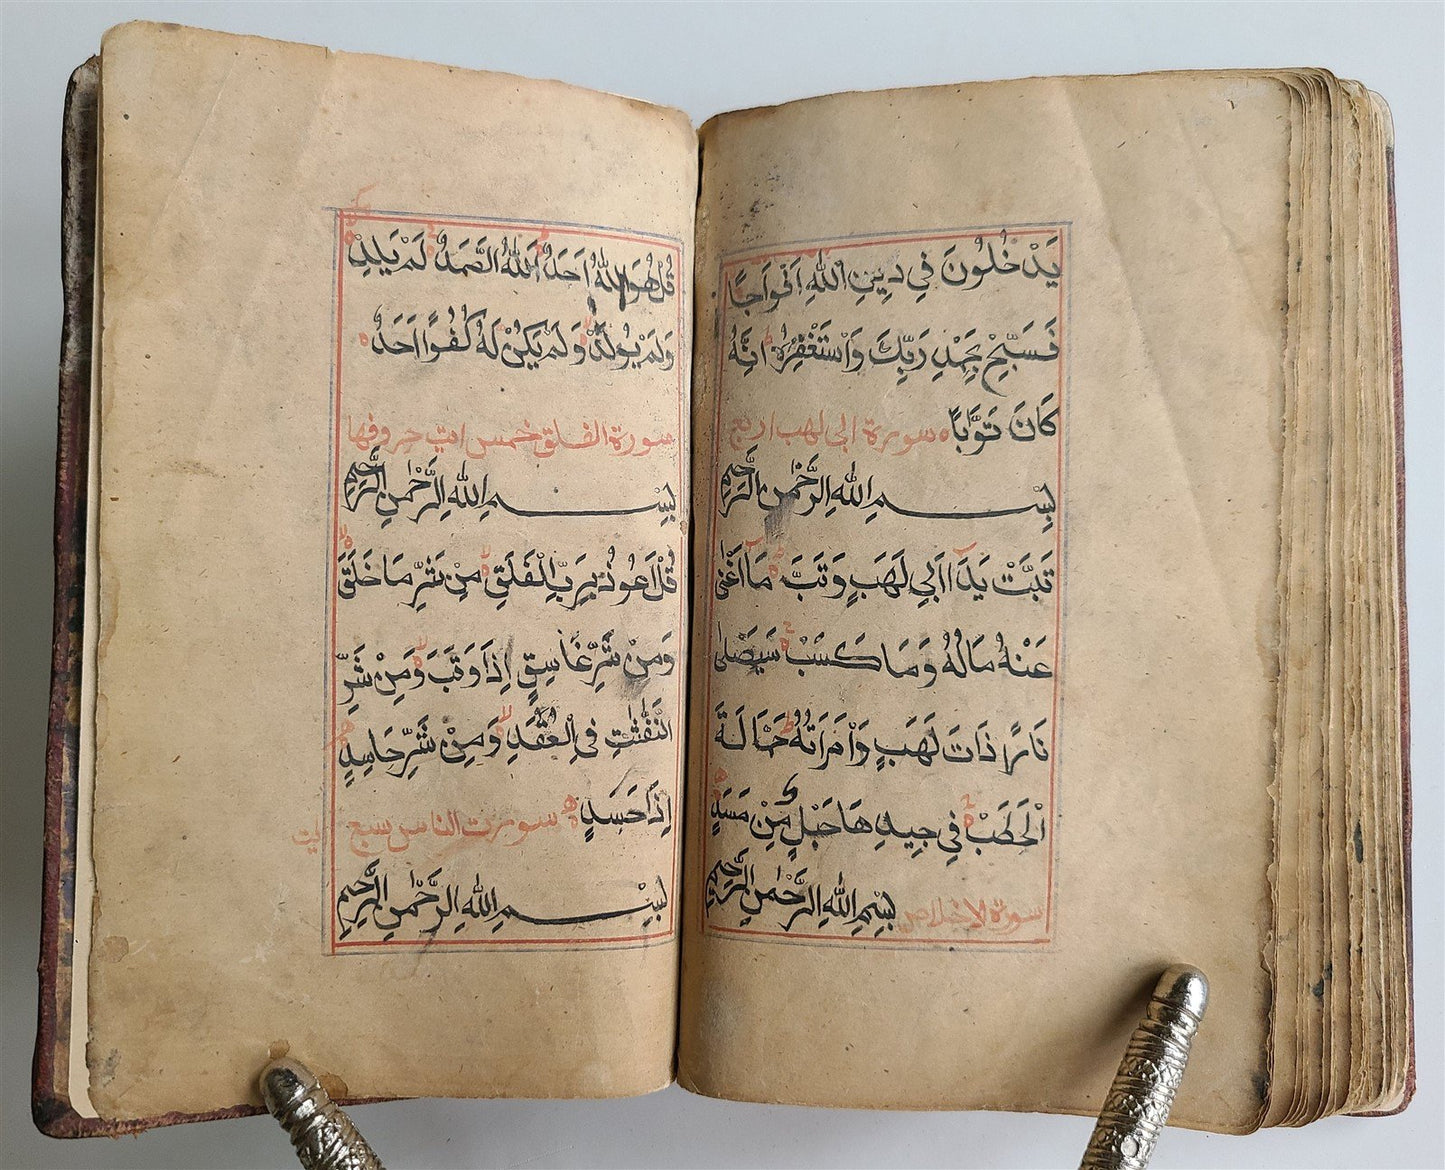 يَدْخُلُونَ فِي دِينِ اللّٰهِ اَفْوَاجًا
فَسَبِّحْ بِحَمْدِ رَبِّكَ وَاسْتَغْفِرْهُ اِنَّهُ
كَانَ تَوَّابًا سورة ابى لهب اربع
بِسْمِ اللّٰهِ الرَّحْمٰنِ الرَّحِيمِ
تَبَّتْ يَدَآ اَبِي لَهَبٍ وَتَبَّ مَآ اَغْنٰى
عَنْهُ مَالُهُ وَمَا كَسَبْ سَيَصْلٰى
نَارًا ذَاتَ لَهَبٍ وَامْرَاَتُهُ حَمَّالَةَ
الْحَطَبْ فِي جِيدِهَا حَبْلٌ مِنْ مَسَدٍ
سورة الاخلاص بِسْمِ اللّٰهِ الرَّحْمٰنِ الرَّحِيمِ
قُلْ هُوَ اللّٰهُ اَحَدٌ اَللّٰهُ الصَّمَدُ لَمْ يَلِدْ
وَلَمْ يُولَدْ وَلَمْ يَكُنْ لَهُ كُفُوًا اَحَدٌ
سورة الفلق خمس ايت حروفها
بِسْمِ اللّٰهِ الرَّحْمٰنِ الرَّحِيمِ
قُلْ اَعُوذُ بِرَبِّ الْفَلَقِ مِنْ شَرِّ مَا خَلَقَ
وَمِنْ شَرِّ غَاسِقٍ اِذَا وَقَبَ وَمِنْ شَرِّ
النَّفّٰثٰتِ فِي الْعُقَدِ وَمِنْ شَرِّ حَاسِدٍ
اِذَا حَسَدٍ سورت الناس سبع ايت
بِسْمِ اللّٰهِ الرَّحْمٰنِ الرَّحِيمِ